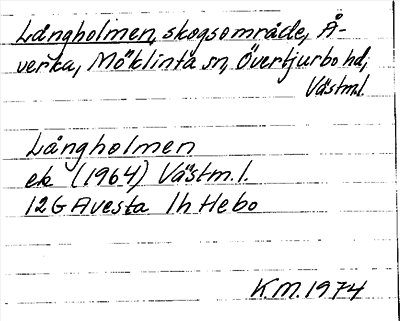 Långholmen, skogsområde, Å-
verka, Möklinta sn, Övertjurbo hd,
Västml.
Långholmen
ek (1964) Västm.l.
12G Avesta 1h Hebo
KM. 1974